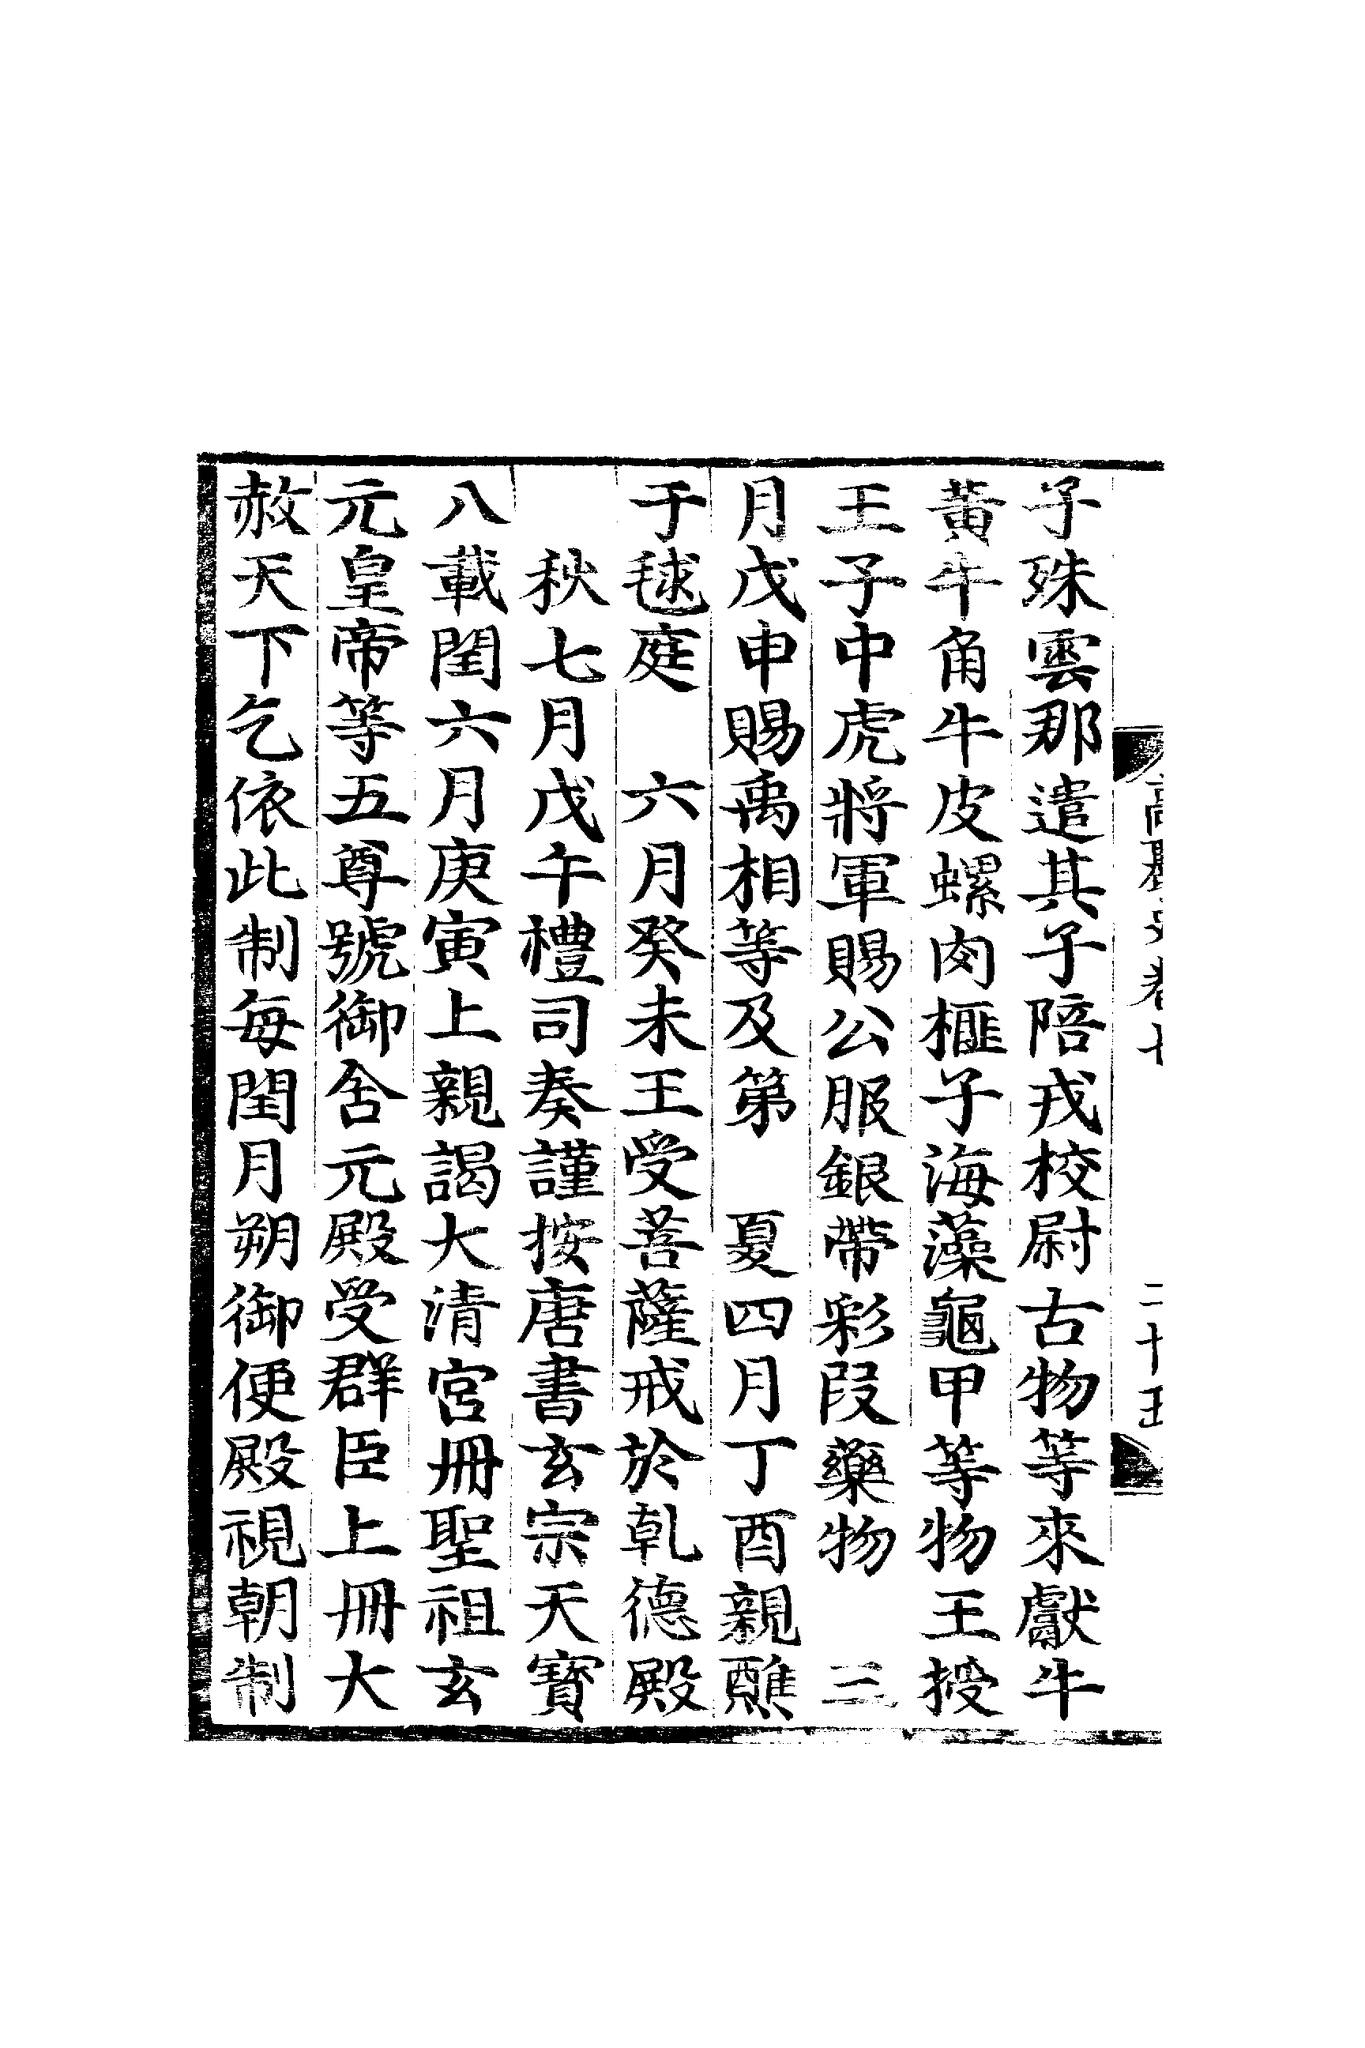 子殊雲那遣其子陪戎校尉古物等來獻牛
黃牛角牛皮螺肉榧子海藻龜甲等物王授
王子中虎將軍賜公服銀帶彩段藥物　三
月戊申賜禹相等及第　夏四月丁酉親醮
于毬庭　六月癸未王受菩薩戒於乹德殿
　秋七月戊午禮司奏謹按唐書玄宗天寶
八載閏六月庚寅上親謁大清宮冊聖祖玄
元皇帝等五尊號御舍元殿受群臣上冊大
赦天下乞依此制每閏月朔御便殿視朝制